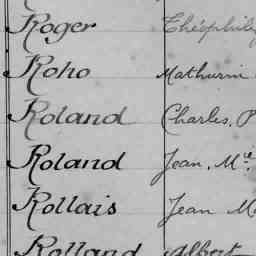 Roger Théophile
Roho Mathurin
Roland Charles, P
Roland Jean, M<sup>ie</sup>
Rollais Jean M
Rolland Albert